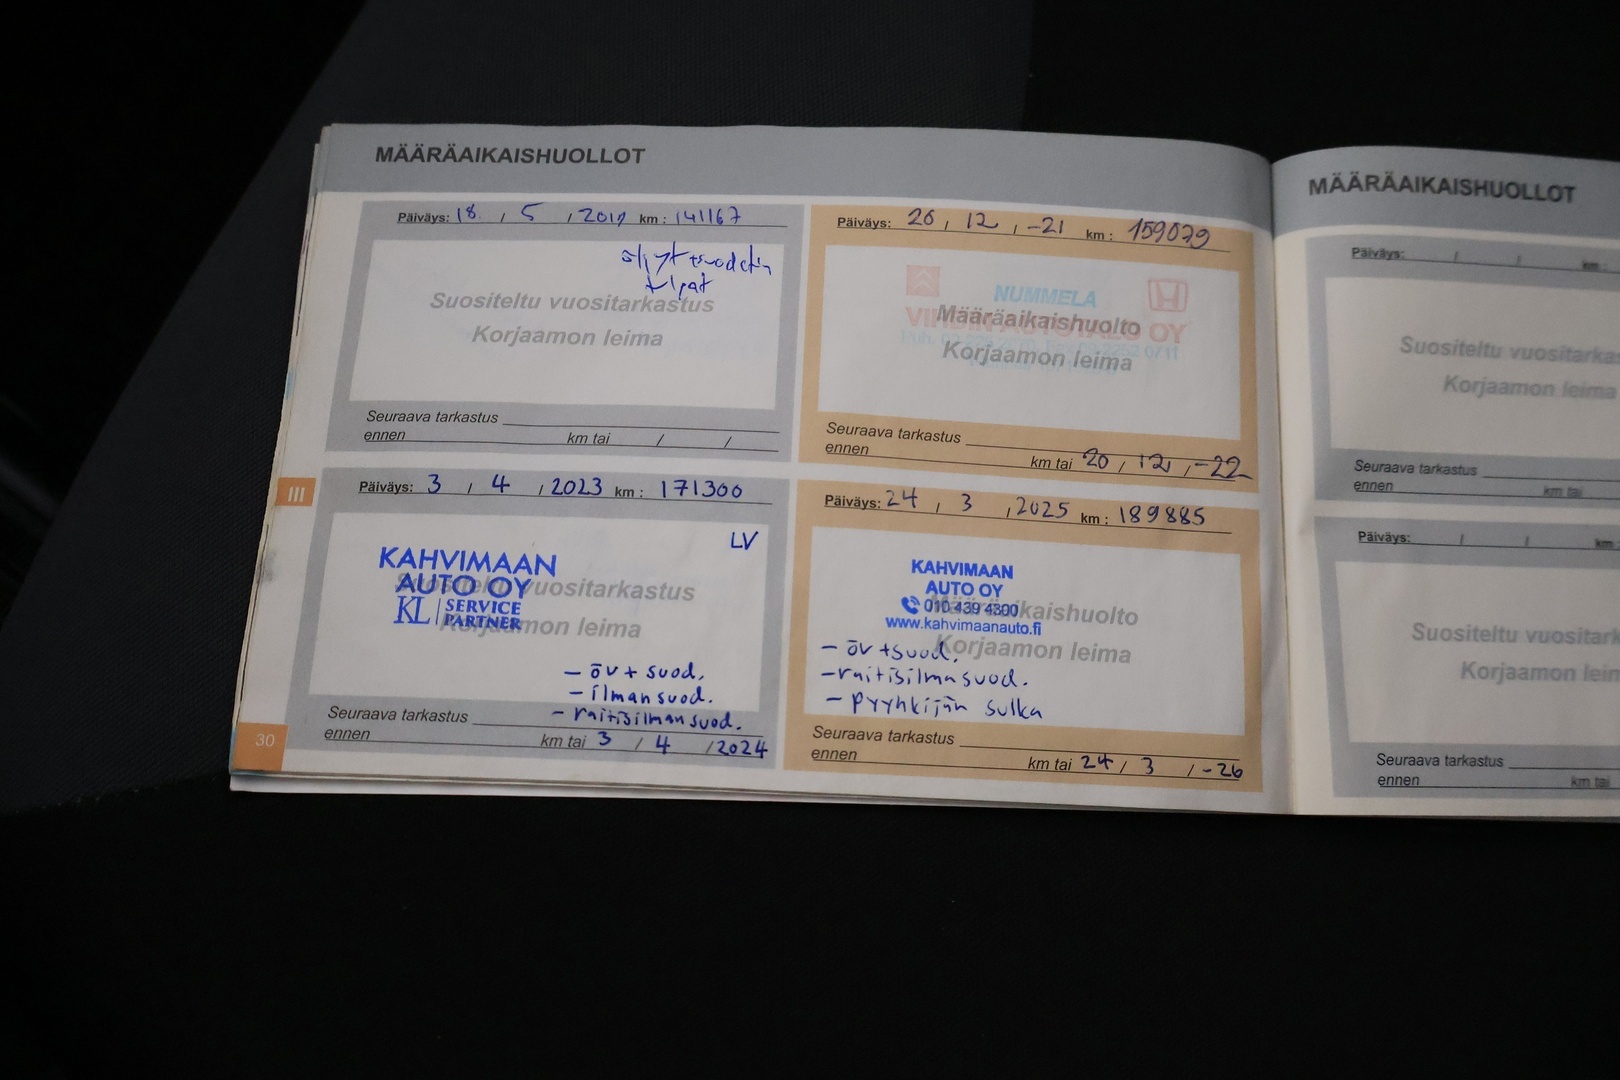 MÄÄRÄAIKAISHUOLLOT
Päiväys: 18 / 5 / 2019 km: 141167
öljyt + suodatin
tulpat
Suositeltu vuositarkastus
Korjaamon leima
Seuraava tarkastus
ennen km tai / /
Päiväys: 20 / 12 / -21 km: 159079
NUMMELA
VIHDIN AUTOTALO OY
Määräaikaishuolto
Korjaamon leima
Seuraava tarkastus
ennen km tai 20 / 12 / -22
III
Päiväys: 3 / 4 / 2023 km: 171300
LV
KAHVIMAAN
AUTO OY
KL SERVICE
PARTNER
Suositeltu vuositarkastus
Korjaamon leima
- öv + suod.
- ilmansuod.
- raitisilmansuod.
Seuraava tarkastus
ennen km tai 3 / 4 / 2024
Päiväys: 24 / 3 / 2025 km: 189885
KAHVIMAAN
AUTO OY
010 439 4300
www.kahvimaanauto.fi
Määräaikaishuolto
Korjaamon leima
- öv + suod.
- raitisilmasuod.
- pyyhkijän sulka
Seuraava tarkastus
ennen km tai 24 / 3 / -26
30
MÄÄRÄAIKAISHUOLLOT
Päiväys: / / km:
Suositeltu vuositarkas
Korjaamon leima
Seuraava tarkastus
ennen km tai
Päiväys: / / km:
Suositeltu vuositark
Korjaamon leim
Seuraava tarkastus
ennen km tai